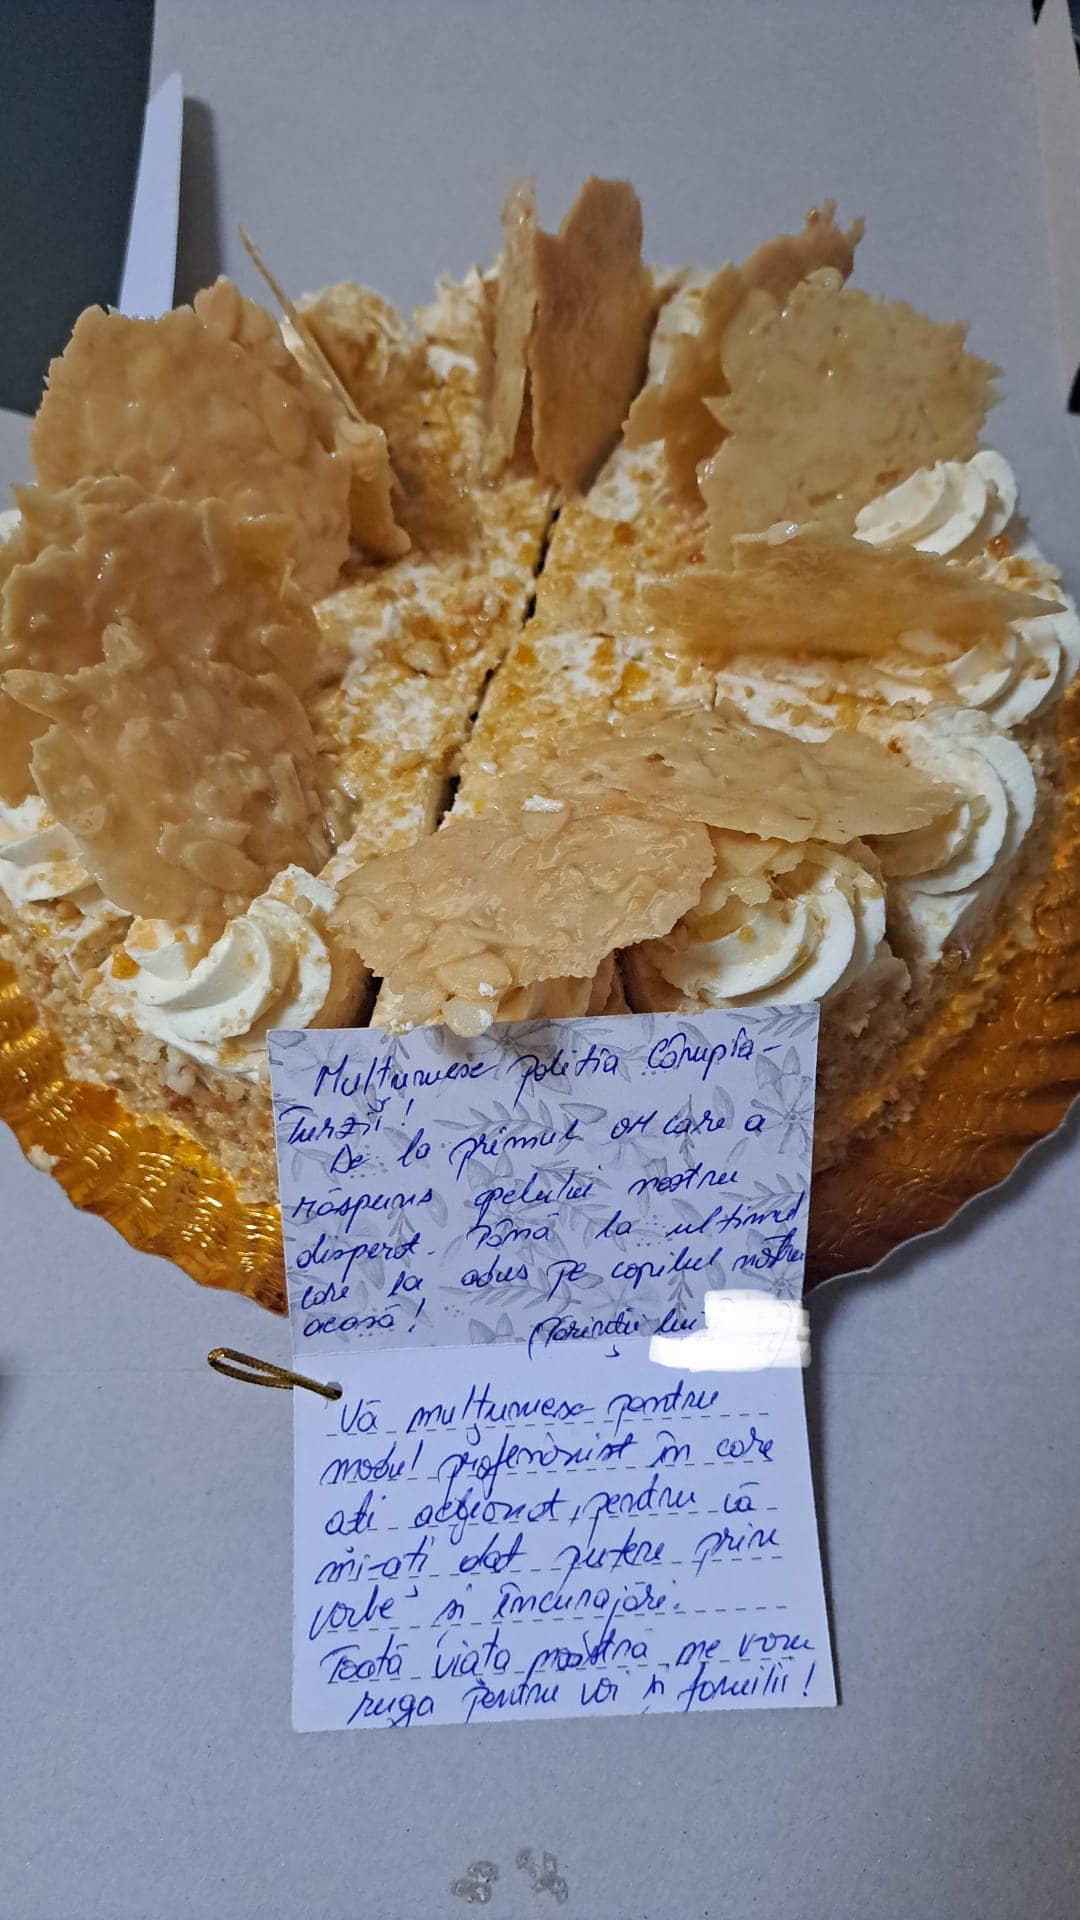 Mulțumesc poliția Câmpia-
Turzii!
De la primul om care a
răspuns apelului nostru
disperat. Până la ultimul
care l-a adus pe copilul nostru
acasă! Părinții lui
Vă mulțumesc pentru
modul profesionist în care
ați acționat, pentru că
mi-ați dat putere prin
vorbe și încurajări.
Toată viața noastră ne vom
ruga pentru voi și familii!